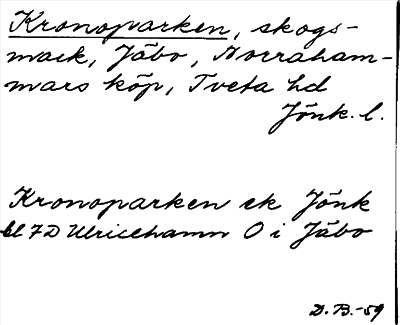 Kronoparken, skogs-
mark, Jäbo, Norraham-
mars köp, Tveta hd
Jönk. l.
Kronoparken ek Jönk
bl 7D Ulricehamn O i Jäbo
D.B.-59